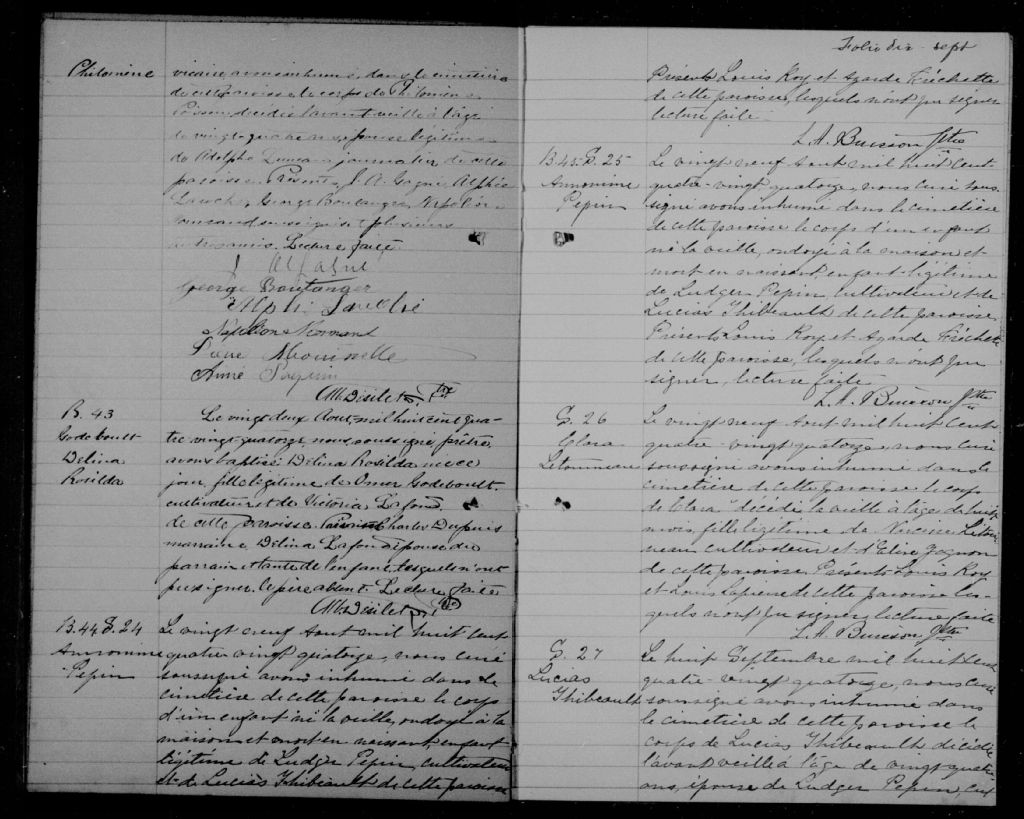 Philomène
vicaire avons inhumé, dans le cimetière
de cette paroisse le corps de Philomène
décédée l'avant veille à l'âge
de vingt quatre ans, épouse légitime
de Adolphe journalier, de cette
paroisse. Présents, J. A. Gagné, Alphée
George Boulanger, Napoléon
soussignés et plusieurs
autres amis. Lecture faite
J. A. Gagné
George Boulanger
Napoléon Normand
Aimé
Désilets Ptre
B. 43
Godeboult
Délina
Rosilda
Le vingt deux Aout, mil huit cent qua-
tre vingt quatorze, nous, soussigné, prêtre,
avons baptisé Délina Rosilda, née ce
jour, fille légitime de Omer Godeboult,
cultivateur, et de Victoria Lafond,
de cette paroisse. Parrain Charles Dupuis
marraine Délina Lafond épouse du
parrain et tante de l'enfant, lesquels n'ont
pu signer, le père absent. Lecture faite
Désilets Ptre
B. 44 S. 24
Annonime
Pepin
Le vingt neuf Aout mil huit cent
quatre-vingt quatorze, nous curé
soussigné avons inhumé dans le
cimetière de cette paroisse le corps
d'un enfant né la veille, ondoyé à la
maison et mort en naissant, enfant
légitime de Ludger Pepin, cultivateur
et de Lucias Thibeault de cette paroisse
Folio dix-sept
Présents Louis Roy et Agarde Fréchette
de cette paroisse, lesquels n'ont pu signer
lecture faite
L. A. Buisson Ptre
B. 45 S. 25
Annonime
Pepin
Le vingt neuf Aout mil huit cent
quatre-vingt quatorze, nous curé sous-
signé avons inhumé dans le cimetière
de cette paroisse le corps d'un enfant
né la veille, ondoyé à la maison et
mort en naissant, enfant légitime
de Ludger Pepin, cultivateur et de
Lucias Thibeault de cette paroisse
Présents Louis Roy et Agarde Fréchette
de cette paroisse, lesquels n'ont pu
signer, lecture faite
L. A. Buisson Ptre
S. 26
Clara
Letourneau
Le vingt neuf Aout mil huit cent
quatre-vingt quatorze, nous curé
soussigné avons inhumé dans le
cimetière de cette paroisse le corps
de Clara décédé la veille à l'âge de huit
mois, fille légitime de Narcisse Letour-
neau cultivateur et d'Elise Gagnon
de cette paroisse. Présents Louis Roy
et Louis Lapierre de cette paroisse les-
quels n'ont pu signer, lecture faite
L. A. Buisson Ptre
S. 27
Lucias
Thibeault
Le huit Septembre mil huit cent
quatre-vingt quatorze, nous curé
soussigné avons inhumé dans
le cimetière de cette paroisse le
corps de Lucias Thibeault décédée
l'avant veille à l'âge de vingt quatre
ans, épouse de Ludger Pepin, cul